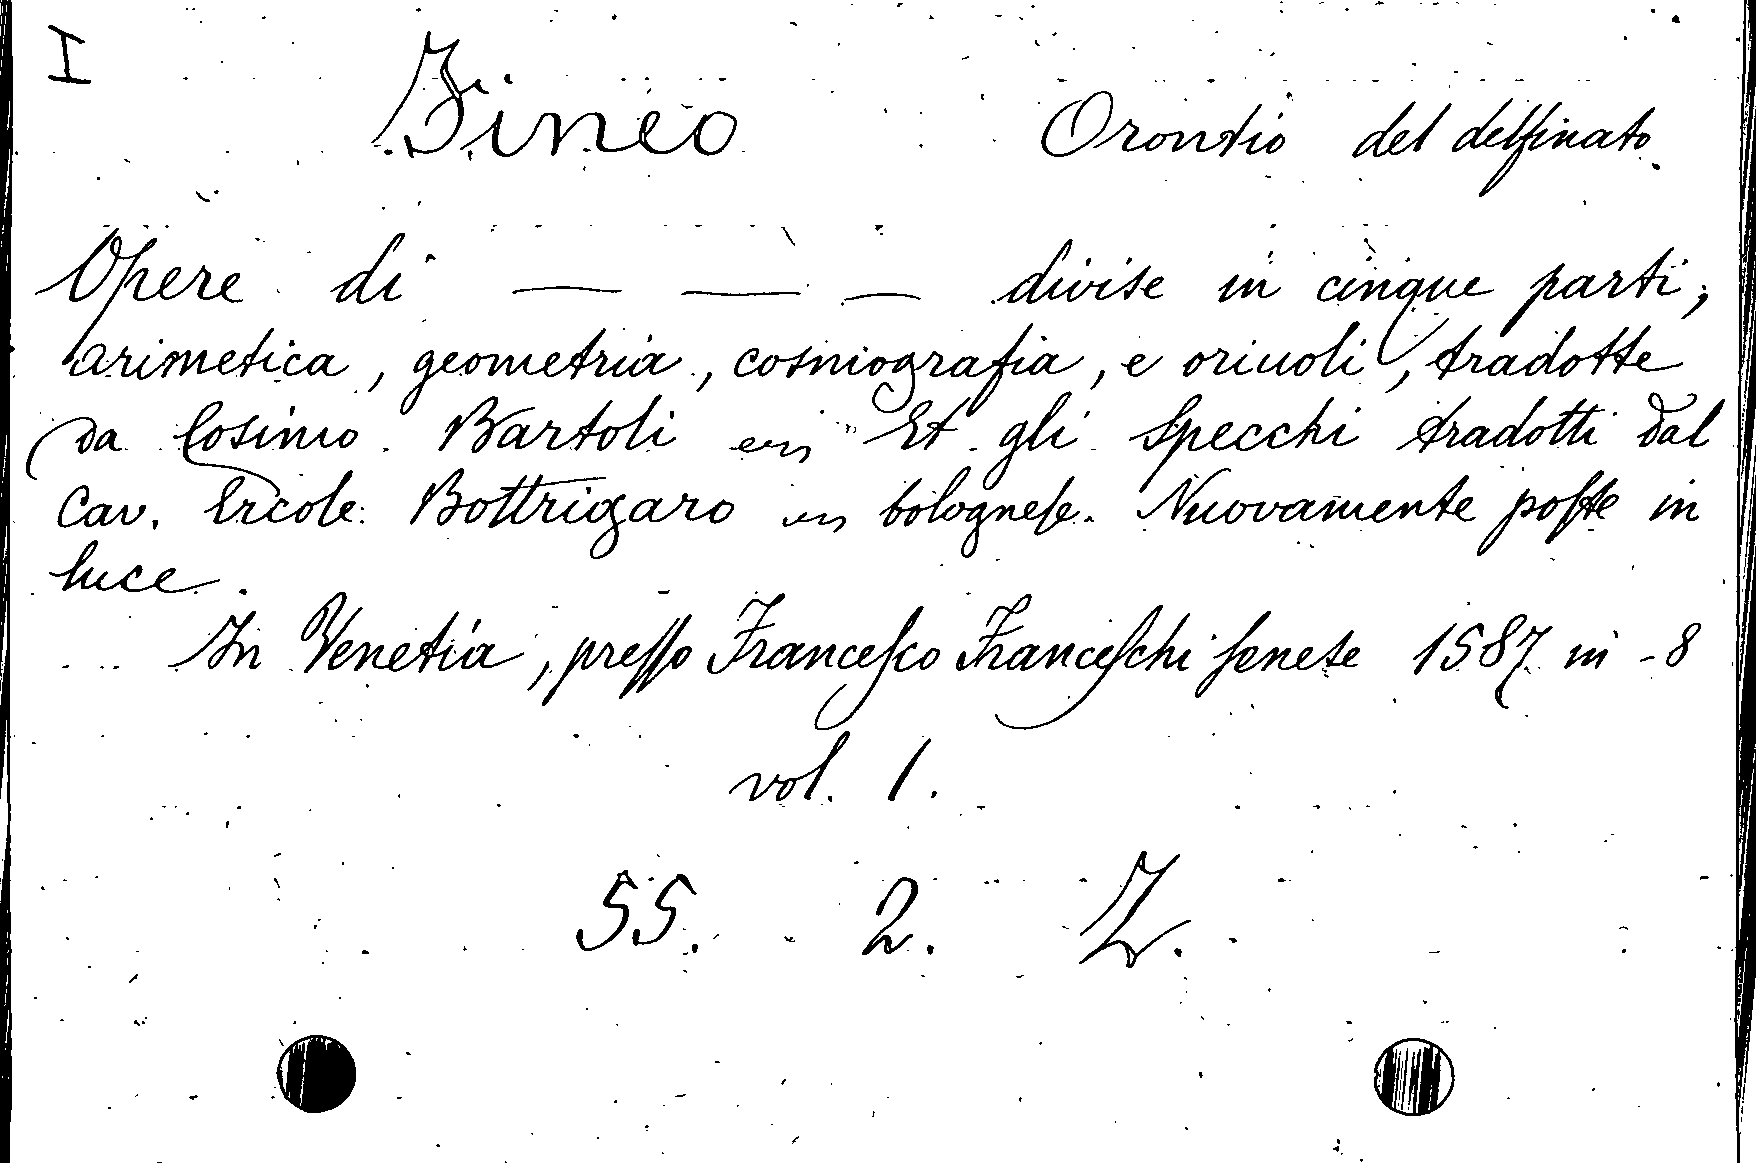 I
Fineo Orontio del delfinato
Opere di — — — divise in cinque parti;
arimetica, geometria, cosmografia, e oriuoli, tradotte
da Cosimo Bartoli Et gli Specchi tradotti dal
Cav. Ercole Bottrigaro bolognese. Nuovamente poste in
luce.
In Venetia, presso Francesco Franceschi senese 1587 in -8
vol. 1.
55. 2. Z.